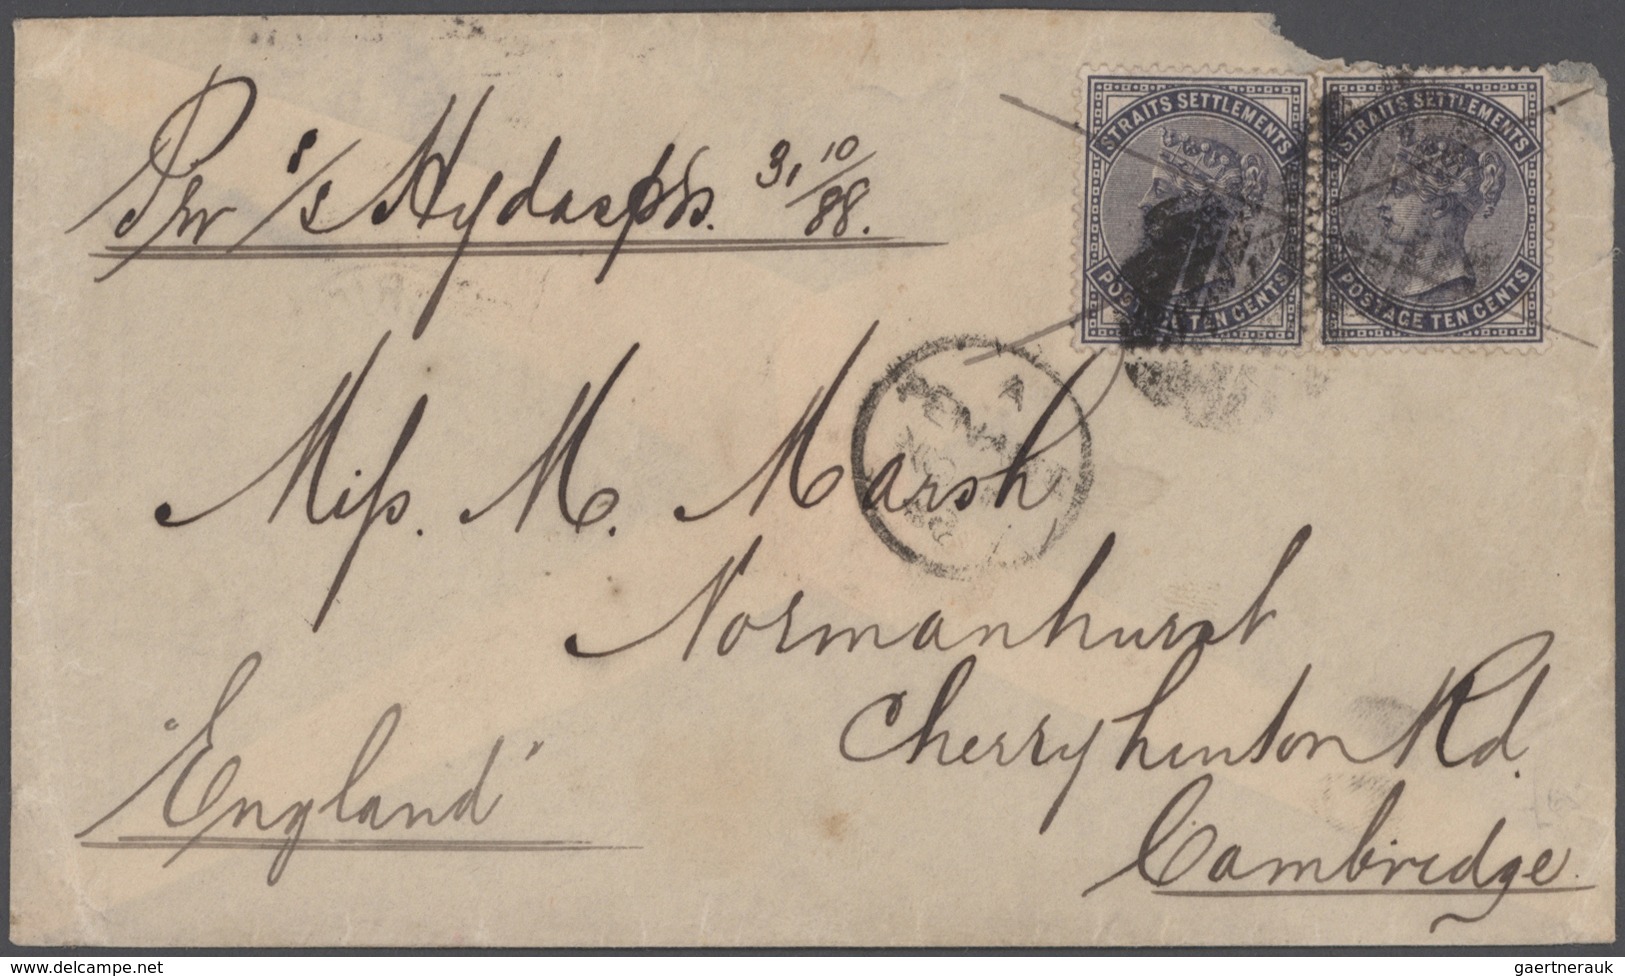 Per s/s Hydaspes. 31 10/88.
STRAITS SETTLEMENTS
POSTAGE TEN CENTS
STRAITS SETTLEMENTS
POSTAGE TEN CENTS
A
PENANG
NO
88
Miss. M. Marsh
Normanhurst
Cherryhinton Rd.
Cambridge.
"England"
www.delcampe.net
gaertnerauk